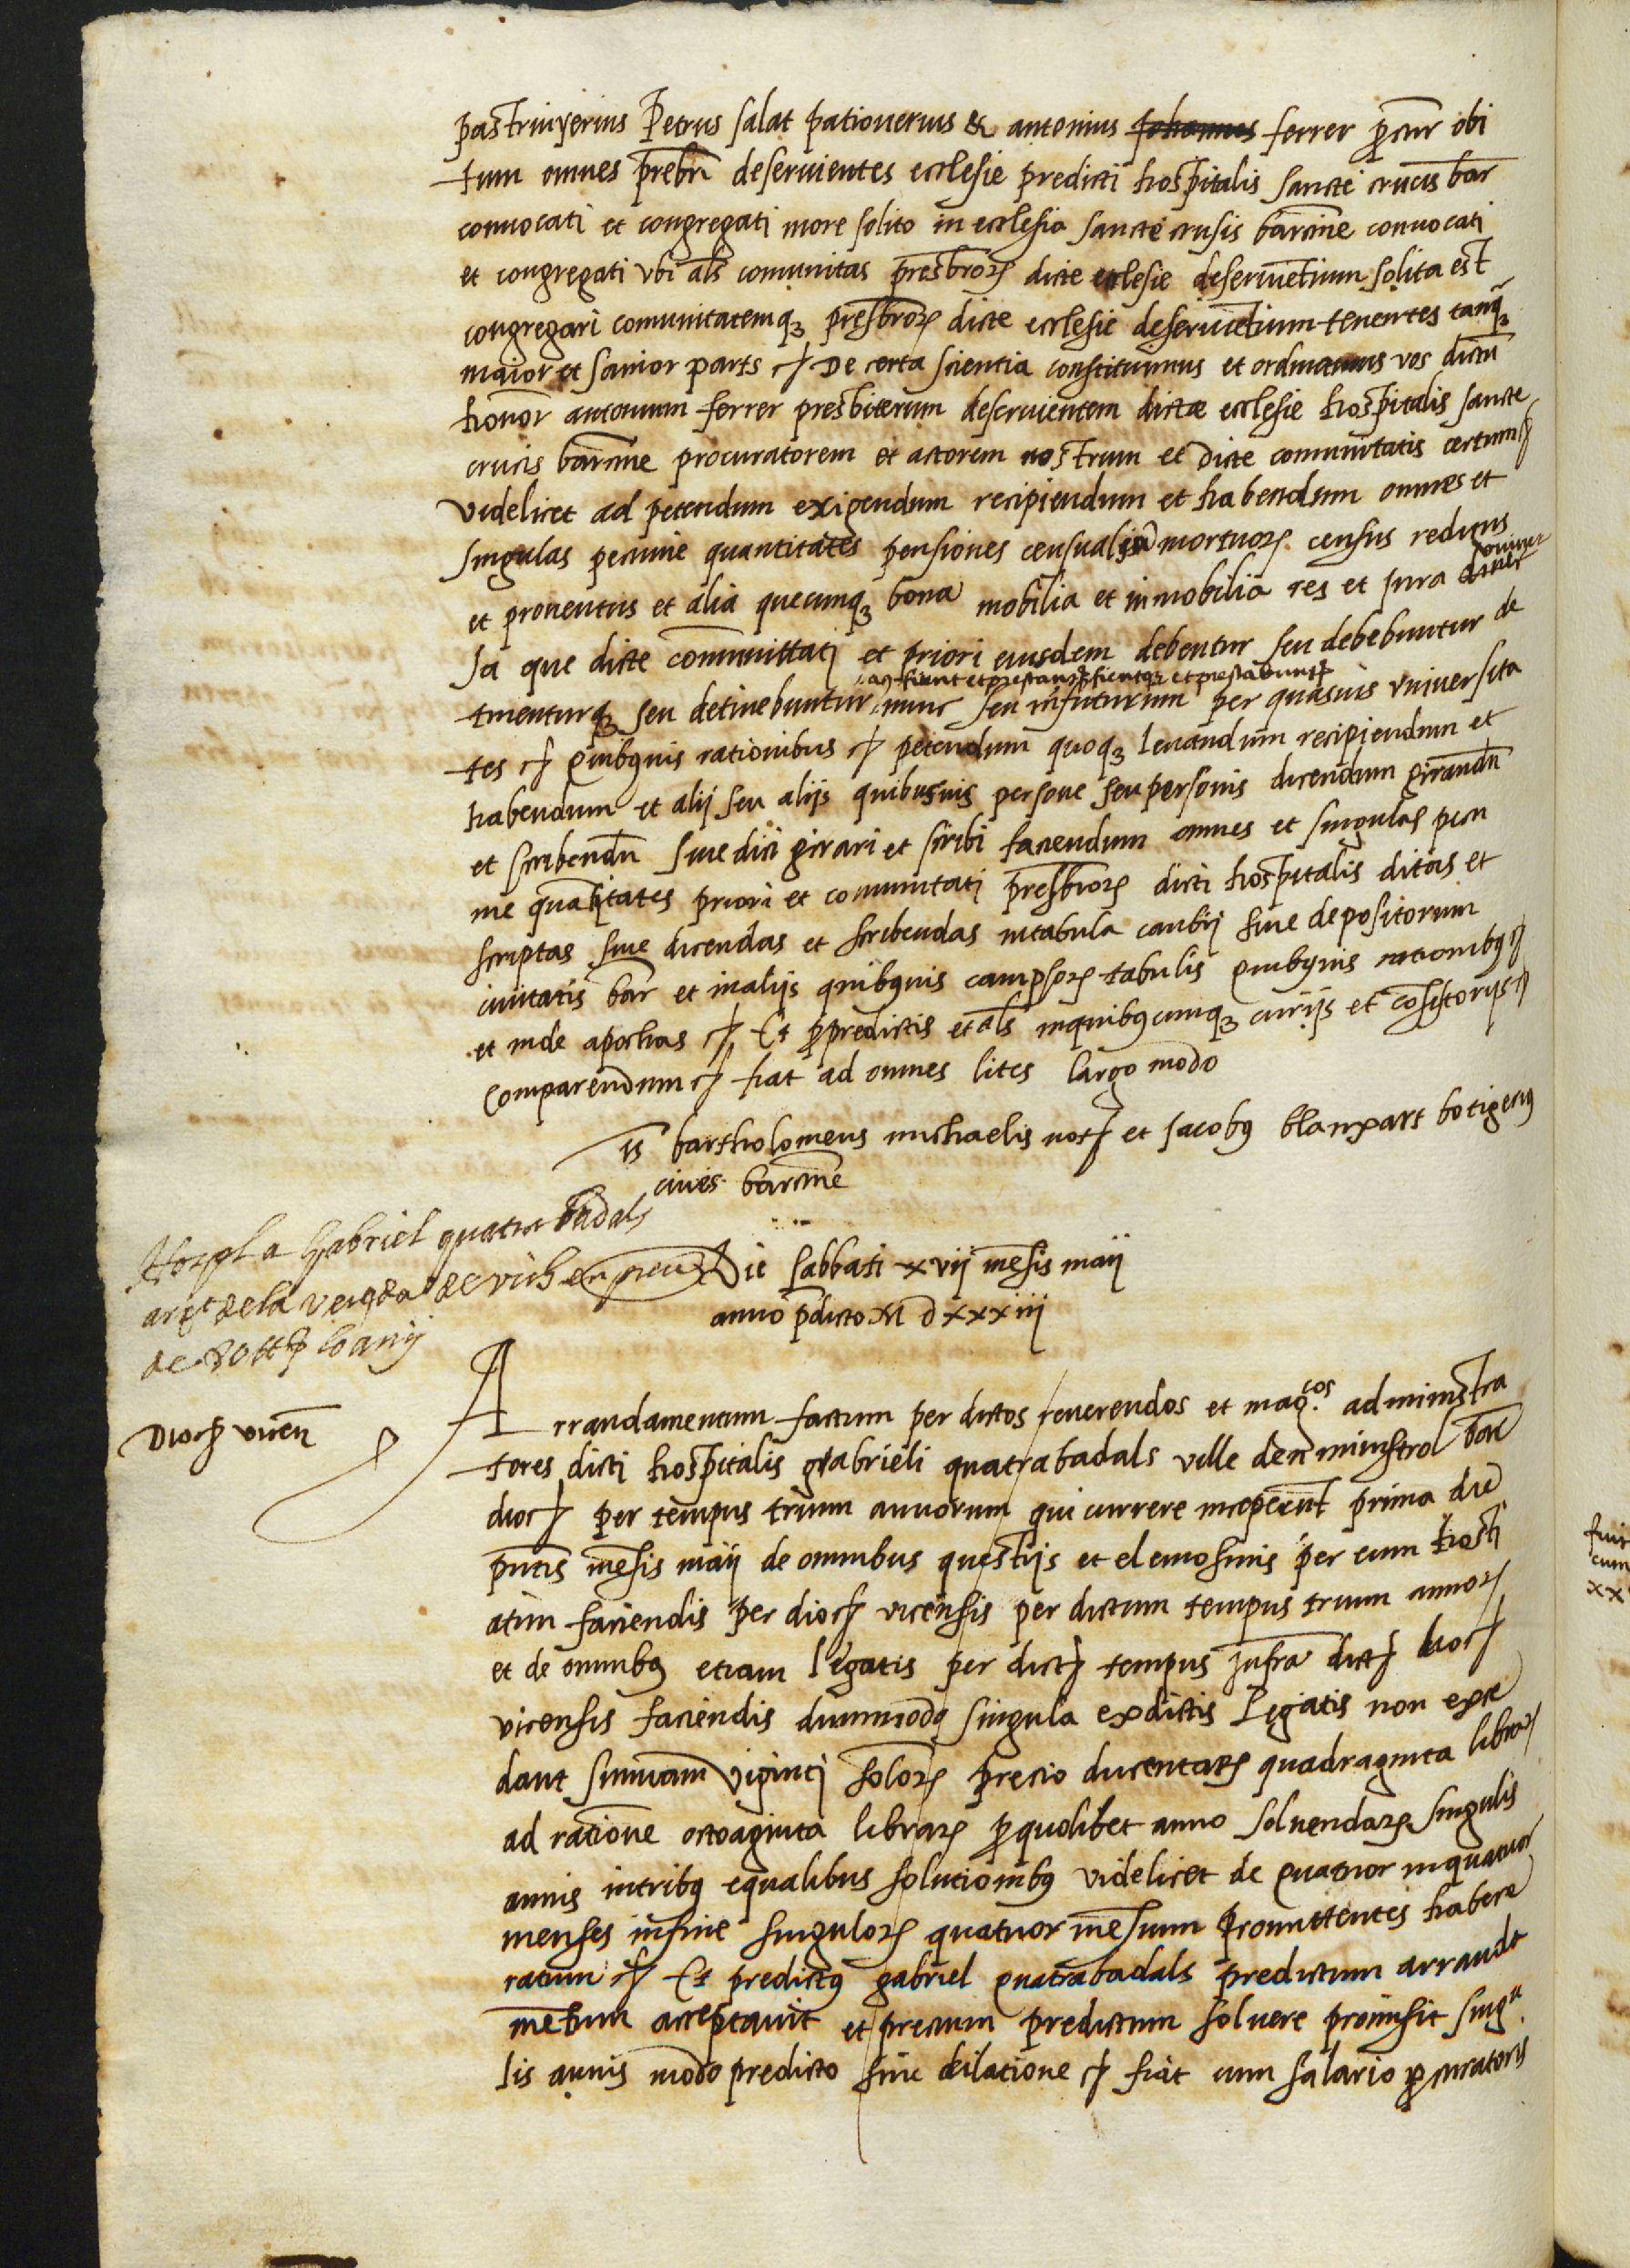 pastrinyerius Petrus salat pationerius & antonius Johannes ferrer pcur obi
tum omnes prebri deseruientes ecclesie predicti hospitalis sancte crucis bar
conuocati et congregati more solito in ecclesia sancte crusis barcine conuocati
et congregati vbi als comunitas presbror dicte ecclesie deseruietium solita est
congregari comunitatemq presbror dicte ecclesie deseruietium tenentes tanq
maior et sanior pars etc De certa scientia constituimus et ordinamus vos dictu
honor antonium ferrer presbiterum deseruientem dicte ecclesie hospitalis sancte
crucis barcine procuratorem et actorem nostrum et dicte comunitatis certum etc
videlicet ad petendum exigendum recipiendum et habendum omnes et
singulas pecunie quantitates pensiones censualiu mortuor census reditus
et prouentus et alia quecunq bona mobilia et inmobilia res et jura
sa que dicte communittati et priori eiusdem debentur seu debebuntur de
ac fient et prestant fientq et prestabunt
tinenturq seu detinebuntur nunc seu infuturum per quasuis vniuersita
tes etc quibusuis rationibus etc petendum quoq leuandum recipiendum et
habendum et alij seu alijs quibusuis persone seu personis dicendum girandu
et scribendu siue dici girari et scribi faciendum omnes et singulas pecu
nie quatitates priori et comunitati presbror dicti hospitalis ditas et
scriptas siue dicendas et scribendas intabula cambij siue depositorum
ciuitatis bar et inalijs quibusuis campsor tabulis quibusuis rationibus etc
et inde apochas etc Et p predictis et als inquibuscunq curijs et cosistorijs etc
comparendum etc fiat ad omnes lites largo modo
ts bartholomeus michaelis not et Jacobus blanxart botigerius
ciues barcine
Hospl a Gabriel quatra badals
de la vegda de vich
Die sabbati xvij mesis maij
anno pdicto M d xxxiiij
Arrandamentum factum per dictos reuerendos et mag.cos administra
Dioc vicen
tores dicti hospitalis gabrieli quatrabadals ville den minstrol bar
dioc per tempus trium annorum qui currere inceperunt prima die
pntis mesis maij de omnibus questijs et elemosinis per eum hosti
atim faciendis per dioc vicensis per dictum tempus trium annor
et de omnibus etiam legatis per dict tempus infra dict dioc
vicensis faciendis dummodo singula exdictis legatis non exce
dant summam viginti solor precio ducentar quadraginta librar
ad racione octoaginta librar p quolibet anno soluendar singulis
annis intribus equalibus solutionibus videlicet de quatuor inquatuor
menses infine singulor quatuor mesium promittentes habere
ratum etc Et predictus gabriel quatrabadals predictum arranda
metum acceptauit et precium predictum soluere promisit singu
lis annis modo predicto sine dilatione etc fiat cum salario pcuratoris